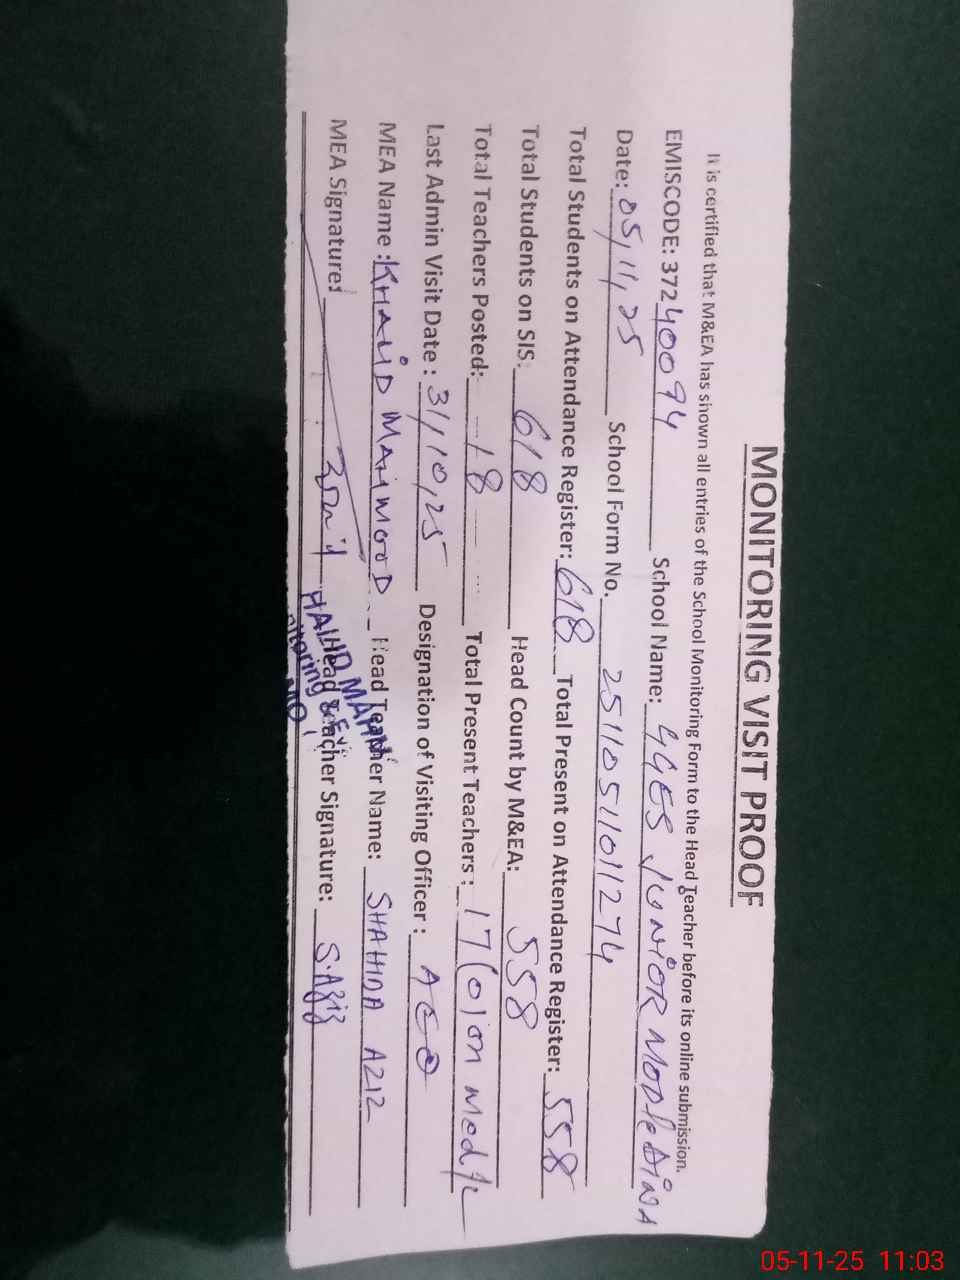 MONITORING VISIT PROOF
It is certified that M&EA has shown all entries of the School Monitoring Form to the Head Teacher before its online submission.
EMISCODE: 37240094 School Name: GGES JUNIOR MODEL DINA
Date: 05,11,25 School Form No. 25110511011274
Total Students on Attendance Register: 618 Total Present on Attendance Register: 558
Total Students on SIS: 618 Head Count by M&EA: 558
Total Teachers Posted: 18 Total Present Teachers: 17 (01 on Med/L
Last Admin Visit Date : 31,10,25 Designation of Visiting Officer : AEO
MEA Name : KHALID MAHMOOD Head Teacher Name: SHAHIDA AZIZ
MEA Signature: Head Teacher Signature: S.Aziz
05-11-25 11:03